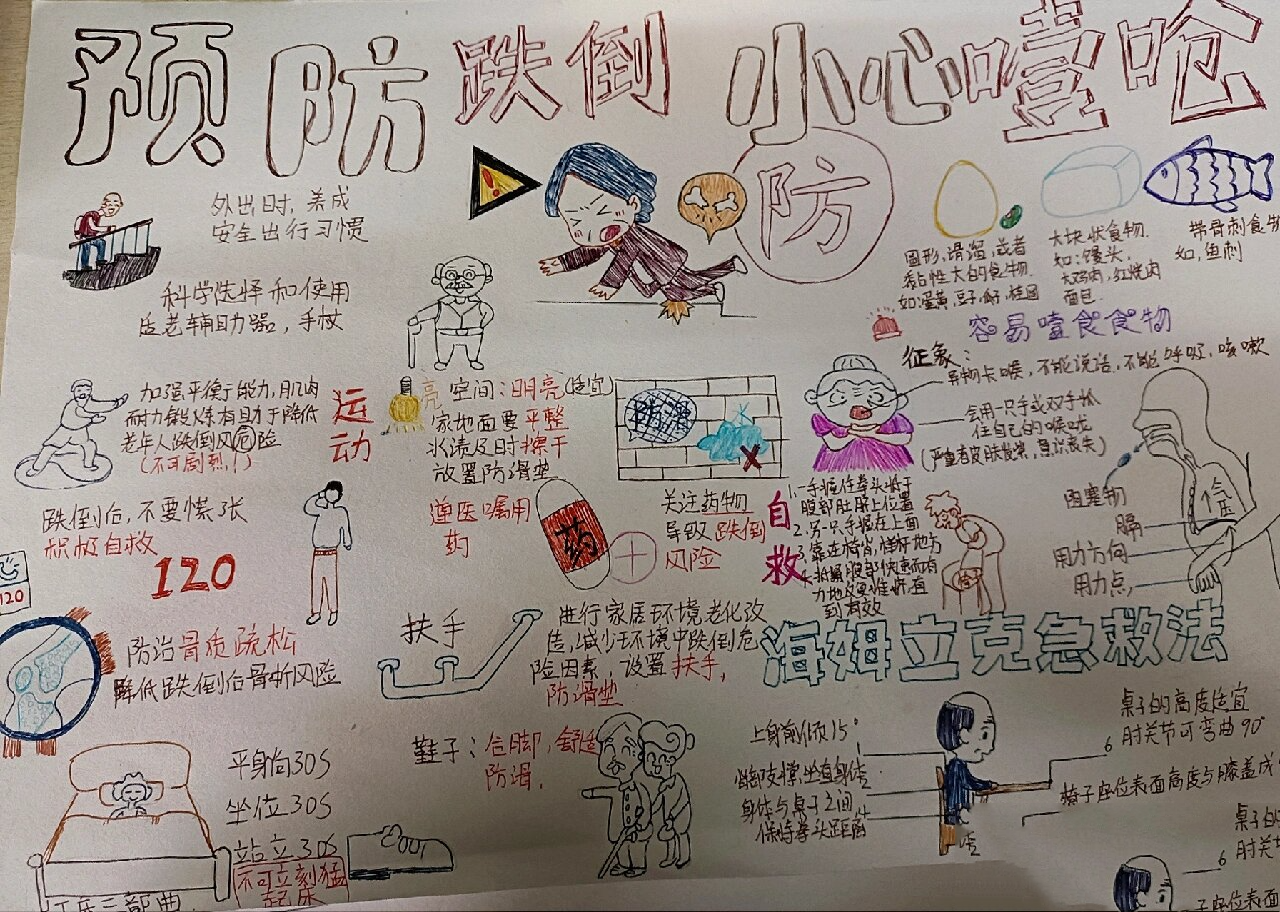 预防跌倒 小心噎呛
防
外出时,养成
安全出行习惯
科学选择和使用
适老辅助器,手杖
圆形,滑溜,或者
黏性大的食物.
大块状食物.
如:馒头,
大鸡肉,红烧肉
带骨刺食物
如,鱼刺
容易噎食食物
加强平衡于能力,肌肉
耐力锻炼有助于降低
老年人跌倒风危险
(不可剧烈!)
运
动
亮 空间:明亮(适宜)
家地面要平整
水渍及时擦干
放置防滑垫
防滑
征象:
异物卡喉,不能说话,不能呼吸,咳嗽
会用一只手或双手抓
住自己的喉咙
跌倒后,不要慌张
积极自救
120
120
遵医嘱用
药
药
关注药物
导致跌倒
风险
自
救
1.一手握住拳头将于
腹部肚脐上位置
2.另一只手握在上面
阻塞物
膈
用力方向
用力点,
防治骨质疏松
降低跌倒后骨折风险
扶手
进行家居环境老化改
造,减少环境中跌倒危
险因素,设置扶手,
防滑垫
海姆立克急救法
平身向30S
坐位30S
站立30S
不可立刻猛
起床
鞋子:合脚,舒适
防滑.
上身前倾15°
身体与桌子之间
保持拳头距离
桌子的高度适宜
肘关节可弯曲90°
6
椅子座位表面高度与膝盖成
桌子的
6
子座位表面